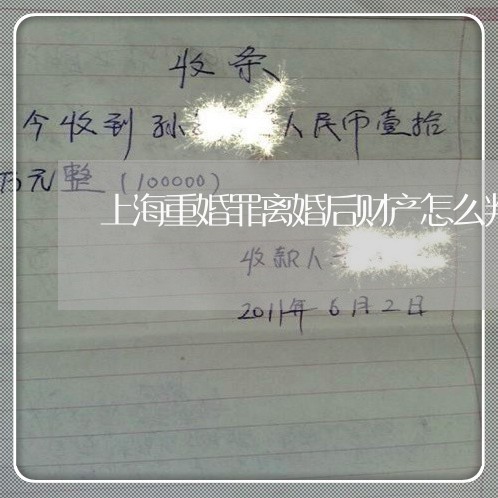 收条
今收到孙 人民币壹拾
万元整(100000)
上海重婚罪离婚后财产怎么判
收款人
2011年6月2日